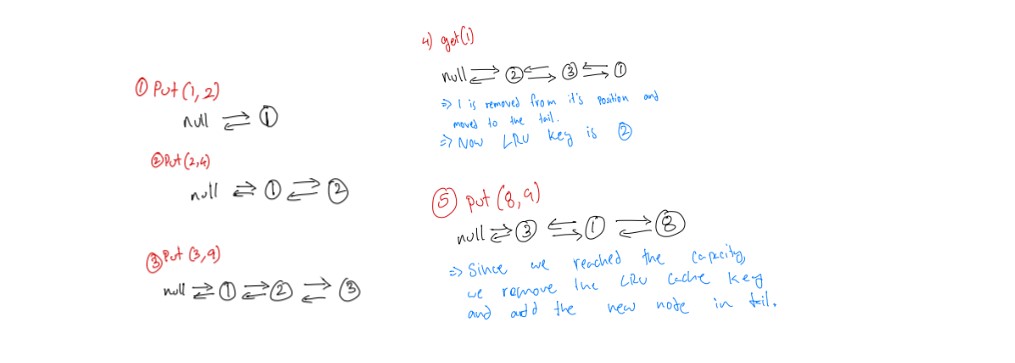 ① Put (1,2)
null ⇄ ①
② Put (2,4)
null ⇄ ① ⇄ ②
③ Put (3,9)
null ⇄ ① ⇄ ② ⇄ ③
4) get(1)
null ⇄ ② ⇄ ③ ⇄ ①
⇒ 1 is removed from it's position and
moved to the tail.
⇒ Now LRU key is ②
⑤ put (8,9)
null ⇄ ③ ⇄ ① ⇄ ⑧
⇒ Since we reached the capacity,
we remove the LRU cache key
and add the new node in tail.